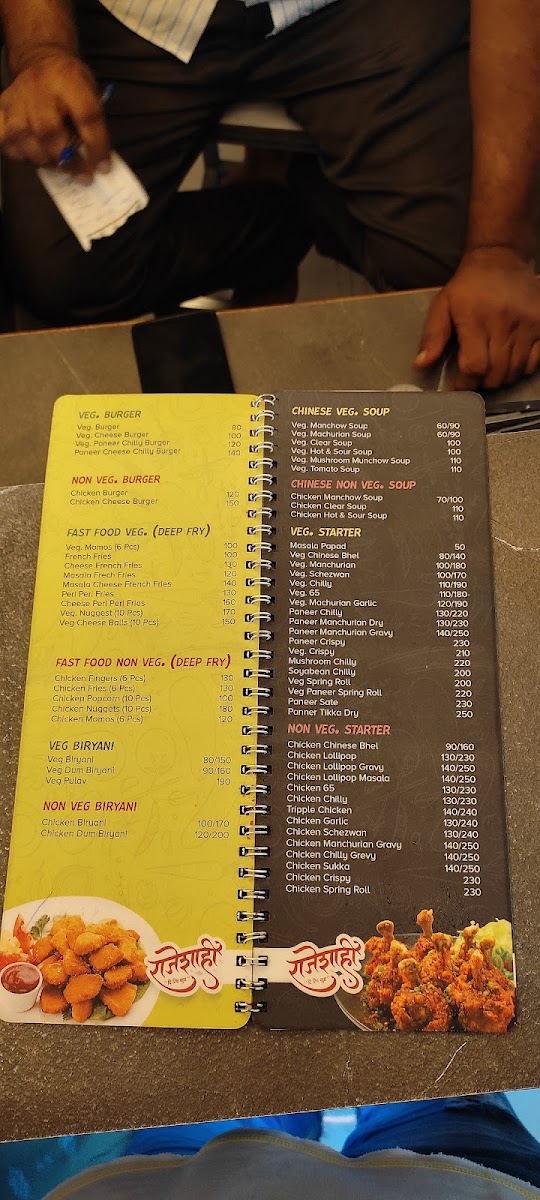 VEG. BURGER
Veg. Burger 80
Veg. Cheese Burger 100
Veg. Paneer Chilly Burger 120
Paneer Cheese Chilly Burger 140
NON VEG. BURGER
Chicken Burger 120
Chicken Cheese Burger 150
FAST FOOD VEG. (DEEP FRY)
Veg. Momos (6 Pcs) 100
French Fries 100
Cheese French Fries 130
Masala Frech Fries 120
Masala Cheese French Fries 140
Peri Peri Fries 130
Cheese Peri Peri Fries 160
Veg. Nuggest (10 Pcs) 170
Veg Cheese Balls (10 Pcs) 150
FAST FOOD NON VEG. (DEEP FRY)
Chicken Fingers (6 Pcs) 130
Chicken Fries (6 Pcs) 130
Chicken Popcorn (10 Pcs) 100
Chicken Nuggets (10 Pcs) 180
Chicken Momos (6 Pcs) 120
VEG BIRYANI
Veg Biryani 80/150
Veg Dum Biryani 90/160
Veg Pulav 190
NON VEG BIRYANI
Chicken Biryani 100/170
Chicken Dum Biryani 120/200
राजेशाही
CHINESE VEG. SOUP
Veg. Manchow Soup 60/90
Veg. Machurian Soup 60/90
Veg. Clear Soup 100
Veg. Hot & Sour Soup 100
Veg. Mushroom Munchow Soup 110
Veg. Tomato Soup 110
CHINESE NON VEG. SOUP
Chicken Manchow Soup 70/100
Chicken Clear Soup 110
Chicken Hot & Sour Soup 110
VEG. STARTER
Masala Papad 50
Veg Chinese Bhel 80/140
Veg. Manchurian 100/180
Veg. Schezwan 100/170
Veg. Chilly 110/190
Veg. 65 110/180
Veg. Machurian Garlic 120/190
Paneer Chilly 130/220
Paneer Manchurian Dry 130/230
Paneer Manchurian Gravy 140/250
Paneer Crispy 230
Veg. Crispy 210
Mushroom Chilly 220
Soyabean Chilly 200
Veg Spring Roll 200
Veg Paneer Spring Roll 220
Paneer Sate 230
Panner Tikka Dry 250
NON VEG. STARTER
Chicken Chinese Bhel 90/160
Chicken Lollipop 130/230
Chicken Lollipop Gravy 140/250
Chicken Lollipop Masala 140/250
Chicken 65 130/230
Chicken Chilly 130/230
Tripple Chicken 140/240
Chicken Garlic 130/240
Chicken Schezwan 130/240
Chicken Manchurian Gravy 140/250
Chicken Chilly Grevy 140/250
Chicken Sukka 140/250
Chicken Crispy 230
Chicken Spring Roll 230
राजेशाही